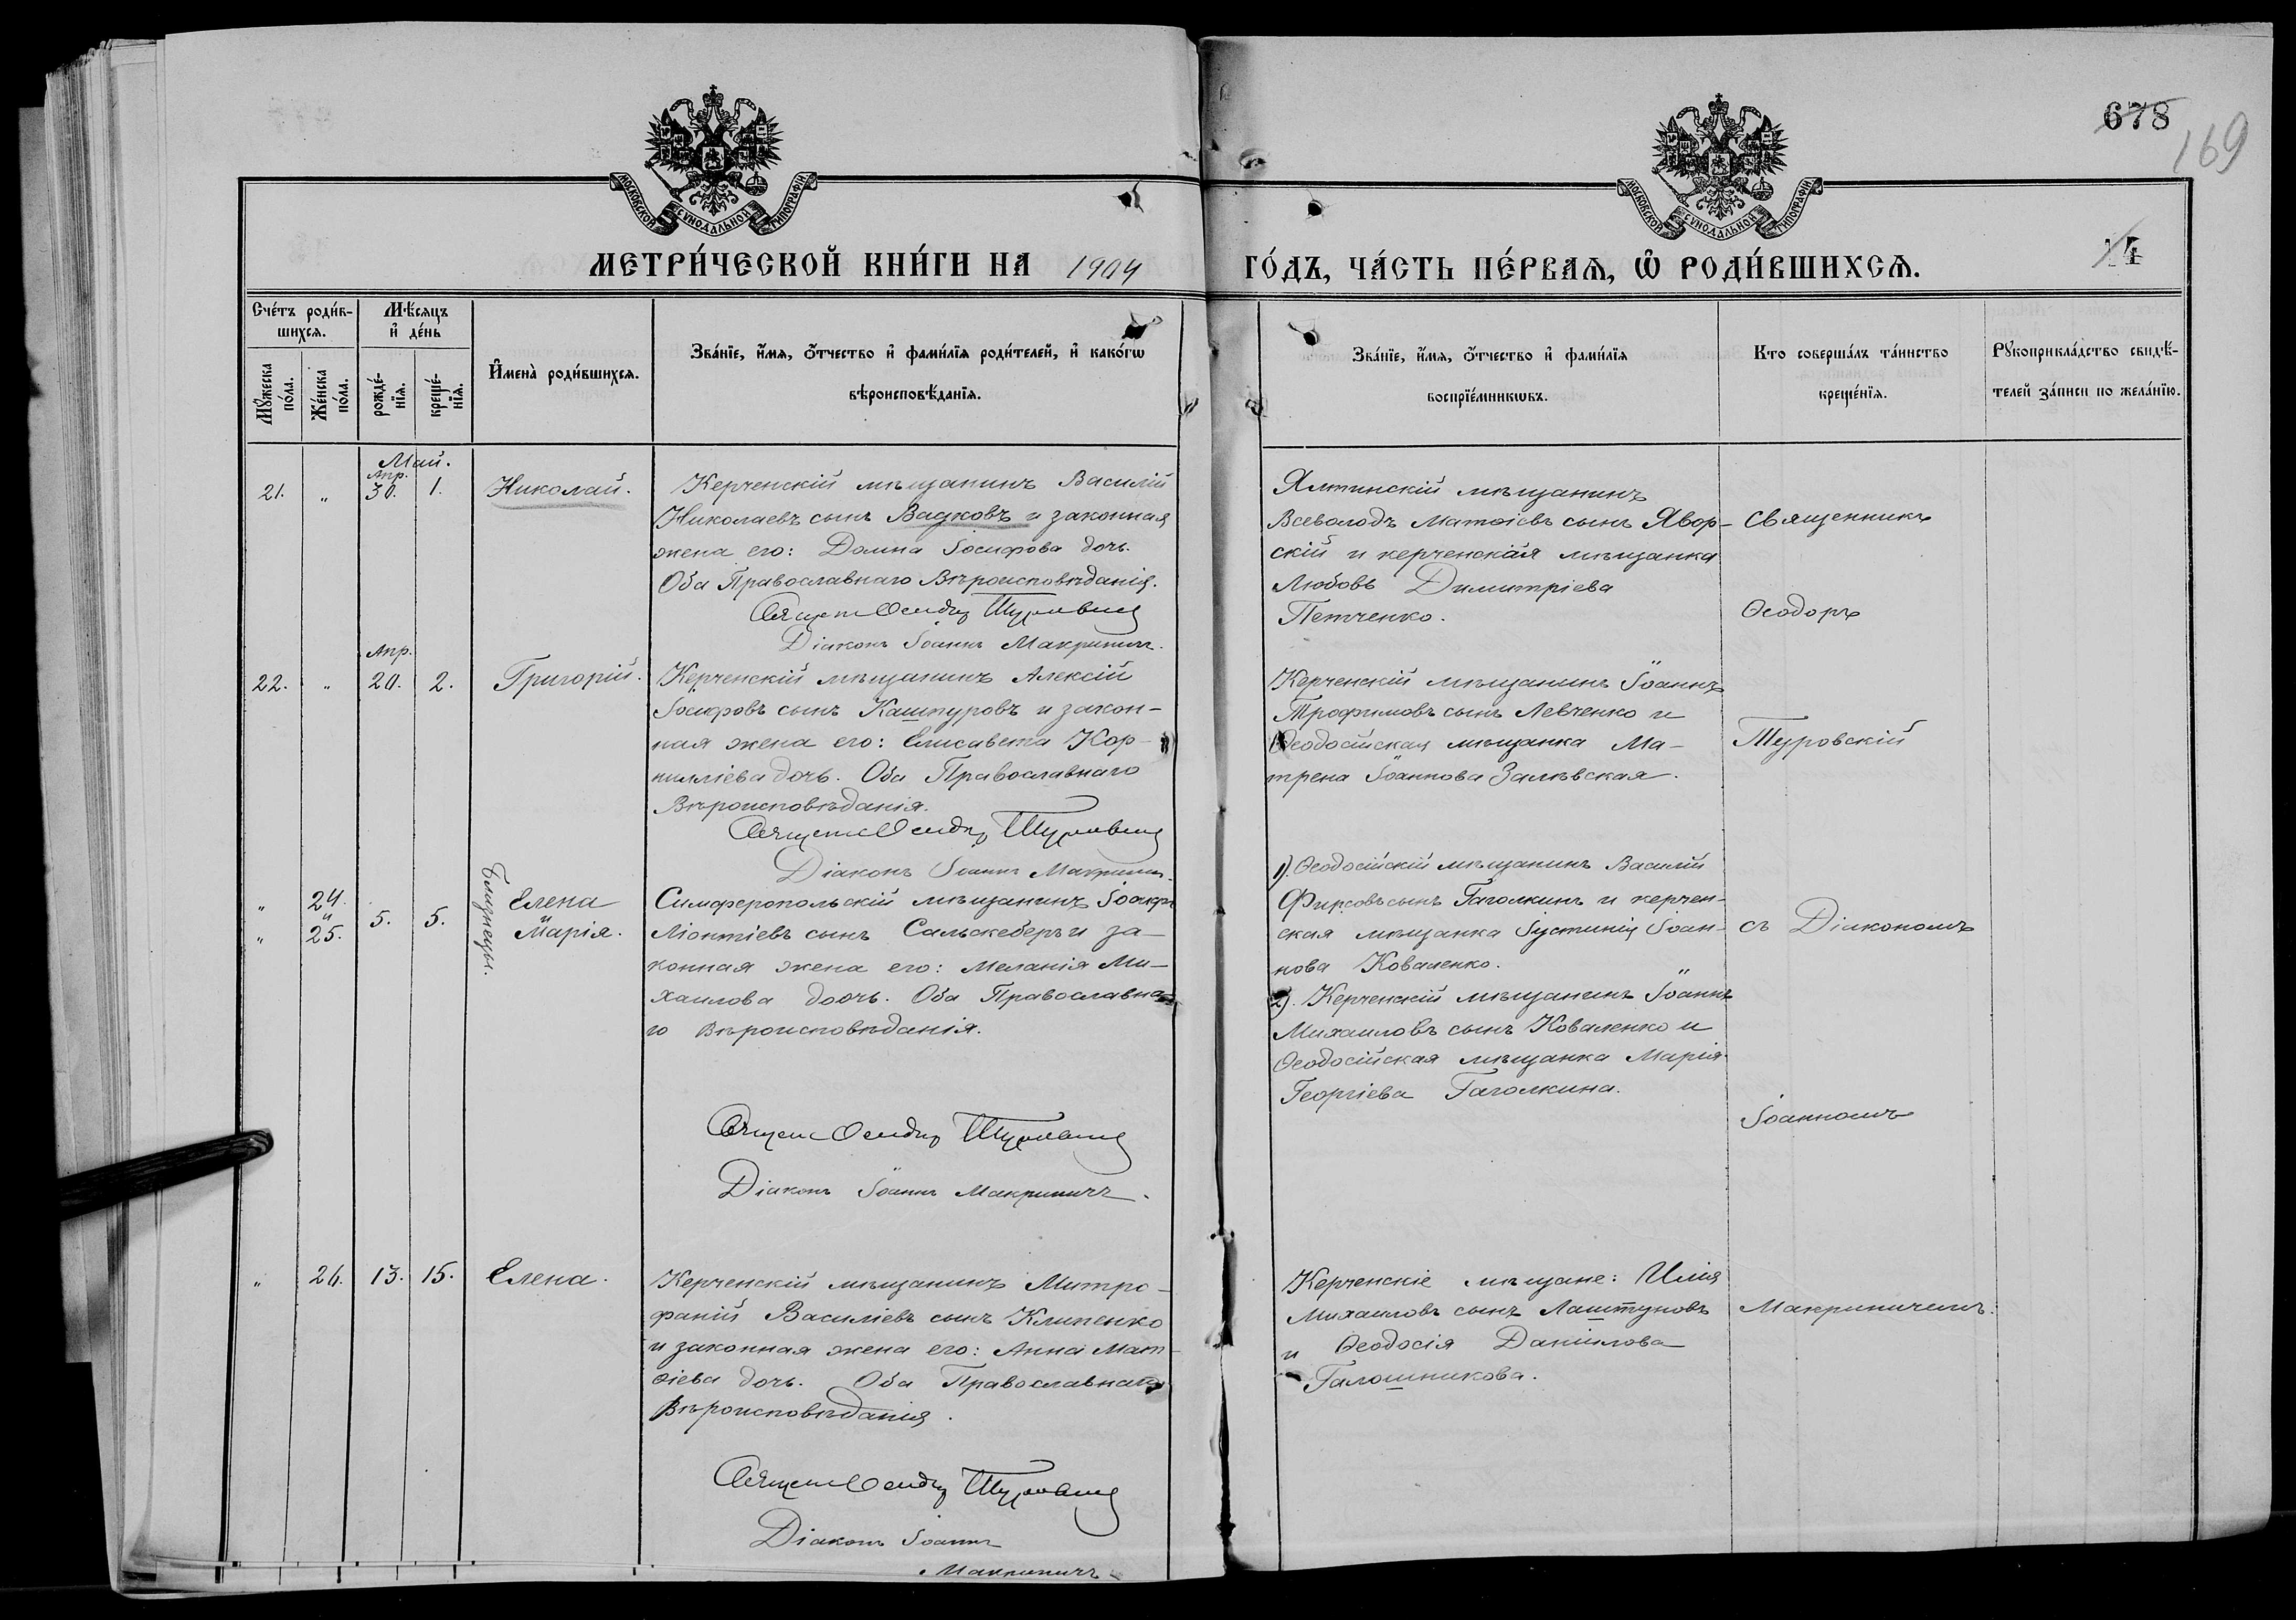 678
169
14
МОСКОВСКОЙ СѴНОДАЛЬНОЙ ТИПОГРАФІИ
МОСКОВСКОЙ СѴНОДАЛЬНОЙ ТИПОГРАФІИ
МЕТРИ́ЧЕСКОЙ КНИ́ГИ НА 1904 ГО́ДЪ, ЧА́СТЬ ПЕ́РВАѦ, Ѡ РОДИ́ВШИХСѦ.
Сче́тъ роди́в-
шихсѧ.
Мѣ́сѧцъ
и҆ де́нь
Мꙋ́жеска
по́ла.
Же́нска
по́ла.
рожде́-
нїѧ.
креще́-
нїѧ.
И҆мена̀ роди́вшихсѧ.
Зва́нїе, и҆́мѧ, ѻ҆́тчество и҆ фами́лїѧ роди́телей, и҆ како́гѡ
вѣроисповѣ́данїѧ.
Зва́нїе, и҆́мѧ, ѻ҆́тчество и҆ фами́лїѧ
воспрїе́мникѡвъ.
Кто соверша́лъ та́инство
креще́нїѧ.
Рꙋкоприкла́дство свидѣ́-
телей за́писи по жела́нїю.
Май.
21. „ Апр. 30. 1. Николай.
Керченскій мѣщанинъ Василій
Николаевъ сынъ Вадковъ и законная
жена его: Домна Іосифова дочь.
Оба Православнаго Вѣроисповѣданія.
Діаконъ Іоаннъ Макриничъ.
Ялтинскій мѣщанинъ
Всеволодъ Матѳіевъ сынъ Явор-
скій и керченская мѣщанка
Любовь Димитріева
Петченко.
Священникъ
Ѳеодоръ
22. „ Апр. 20. 2. Григорій.
Керченскій мѣщанинъ Алексій
Іосифовъ сынъ Кашпуровъ и закон-
ная жена его: Елисавета Кор-
нилліева дочь. Оба Православнаго
Вѣроисповѣданія.
Діаконъ Іоаннъ Макриничъ.
Керченскій мѣщанинъ Іоаннъ
Трофимовъ сынъ Левченко и
Ѳеодосійская мѣщанка Ма-
трена Іоаннова Залѣвская.
Туровскій
„ 24.
и
„ 25.
5. 5.
Близнецы.
Елена
и
Марія.
Симферопольскій мѣщанинъ Іосифъ
Ліонтіевъ сынъ Сальскеберъ и за-
конная жена его: Меланія Ми-
хаилова дочь. Оба Православна-
го Вѣроисповѣданія.
Діаконъ Іоаннъ Макриничъ.
1). Ѳеодосійскій мѣщанинъ Василій
Фирсовъ сынъ Гаголкинъ и керчен-
ская мѣщанка Іустинія Іоан-
нова Коваленко.
2). Керченскій мѣщанинъ Іоаннъ
Михаиловъ сынъ Коваленко и
Ѳеодосійская мѣщанка Марія
Георгіева Гаголкина.
съ Діакономъ
Іоанномъ
„ 26. 13. 15. Елена.
Керченскій мѣщанинъ Митро-
фаній Василіевъ сынъ Клименко
и законная жена его: Анна Мат-
ѳіева дочь. Оба Православнаго
Вѣроисповѣданія.
Діаконъ Іоаннъ
Макриничъ
Керченскіе мѣщане: Илія
Михаиловъ сынъ Лаштуновъ
и Ѳеодосія Даніилова
Галошникова.
Макриничемъ.